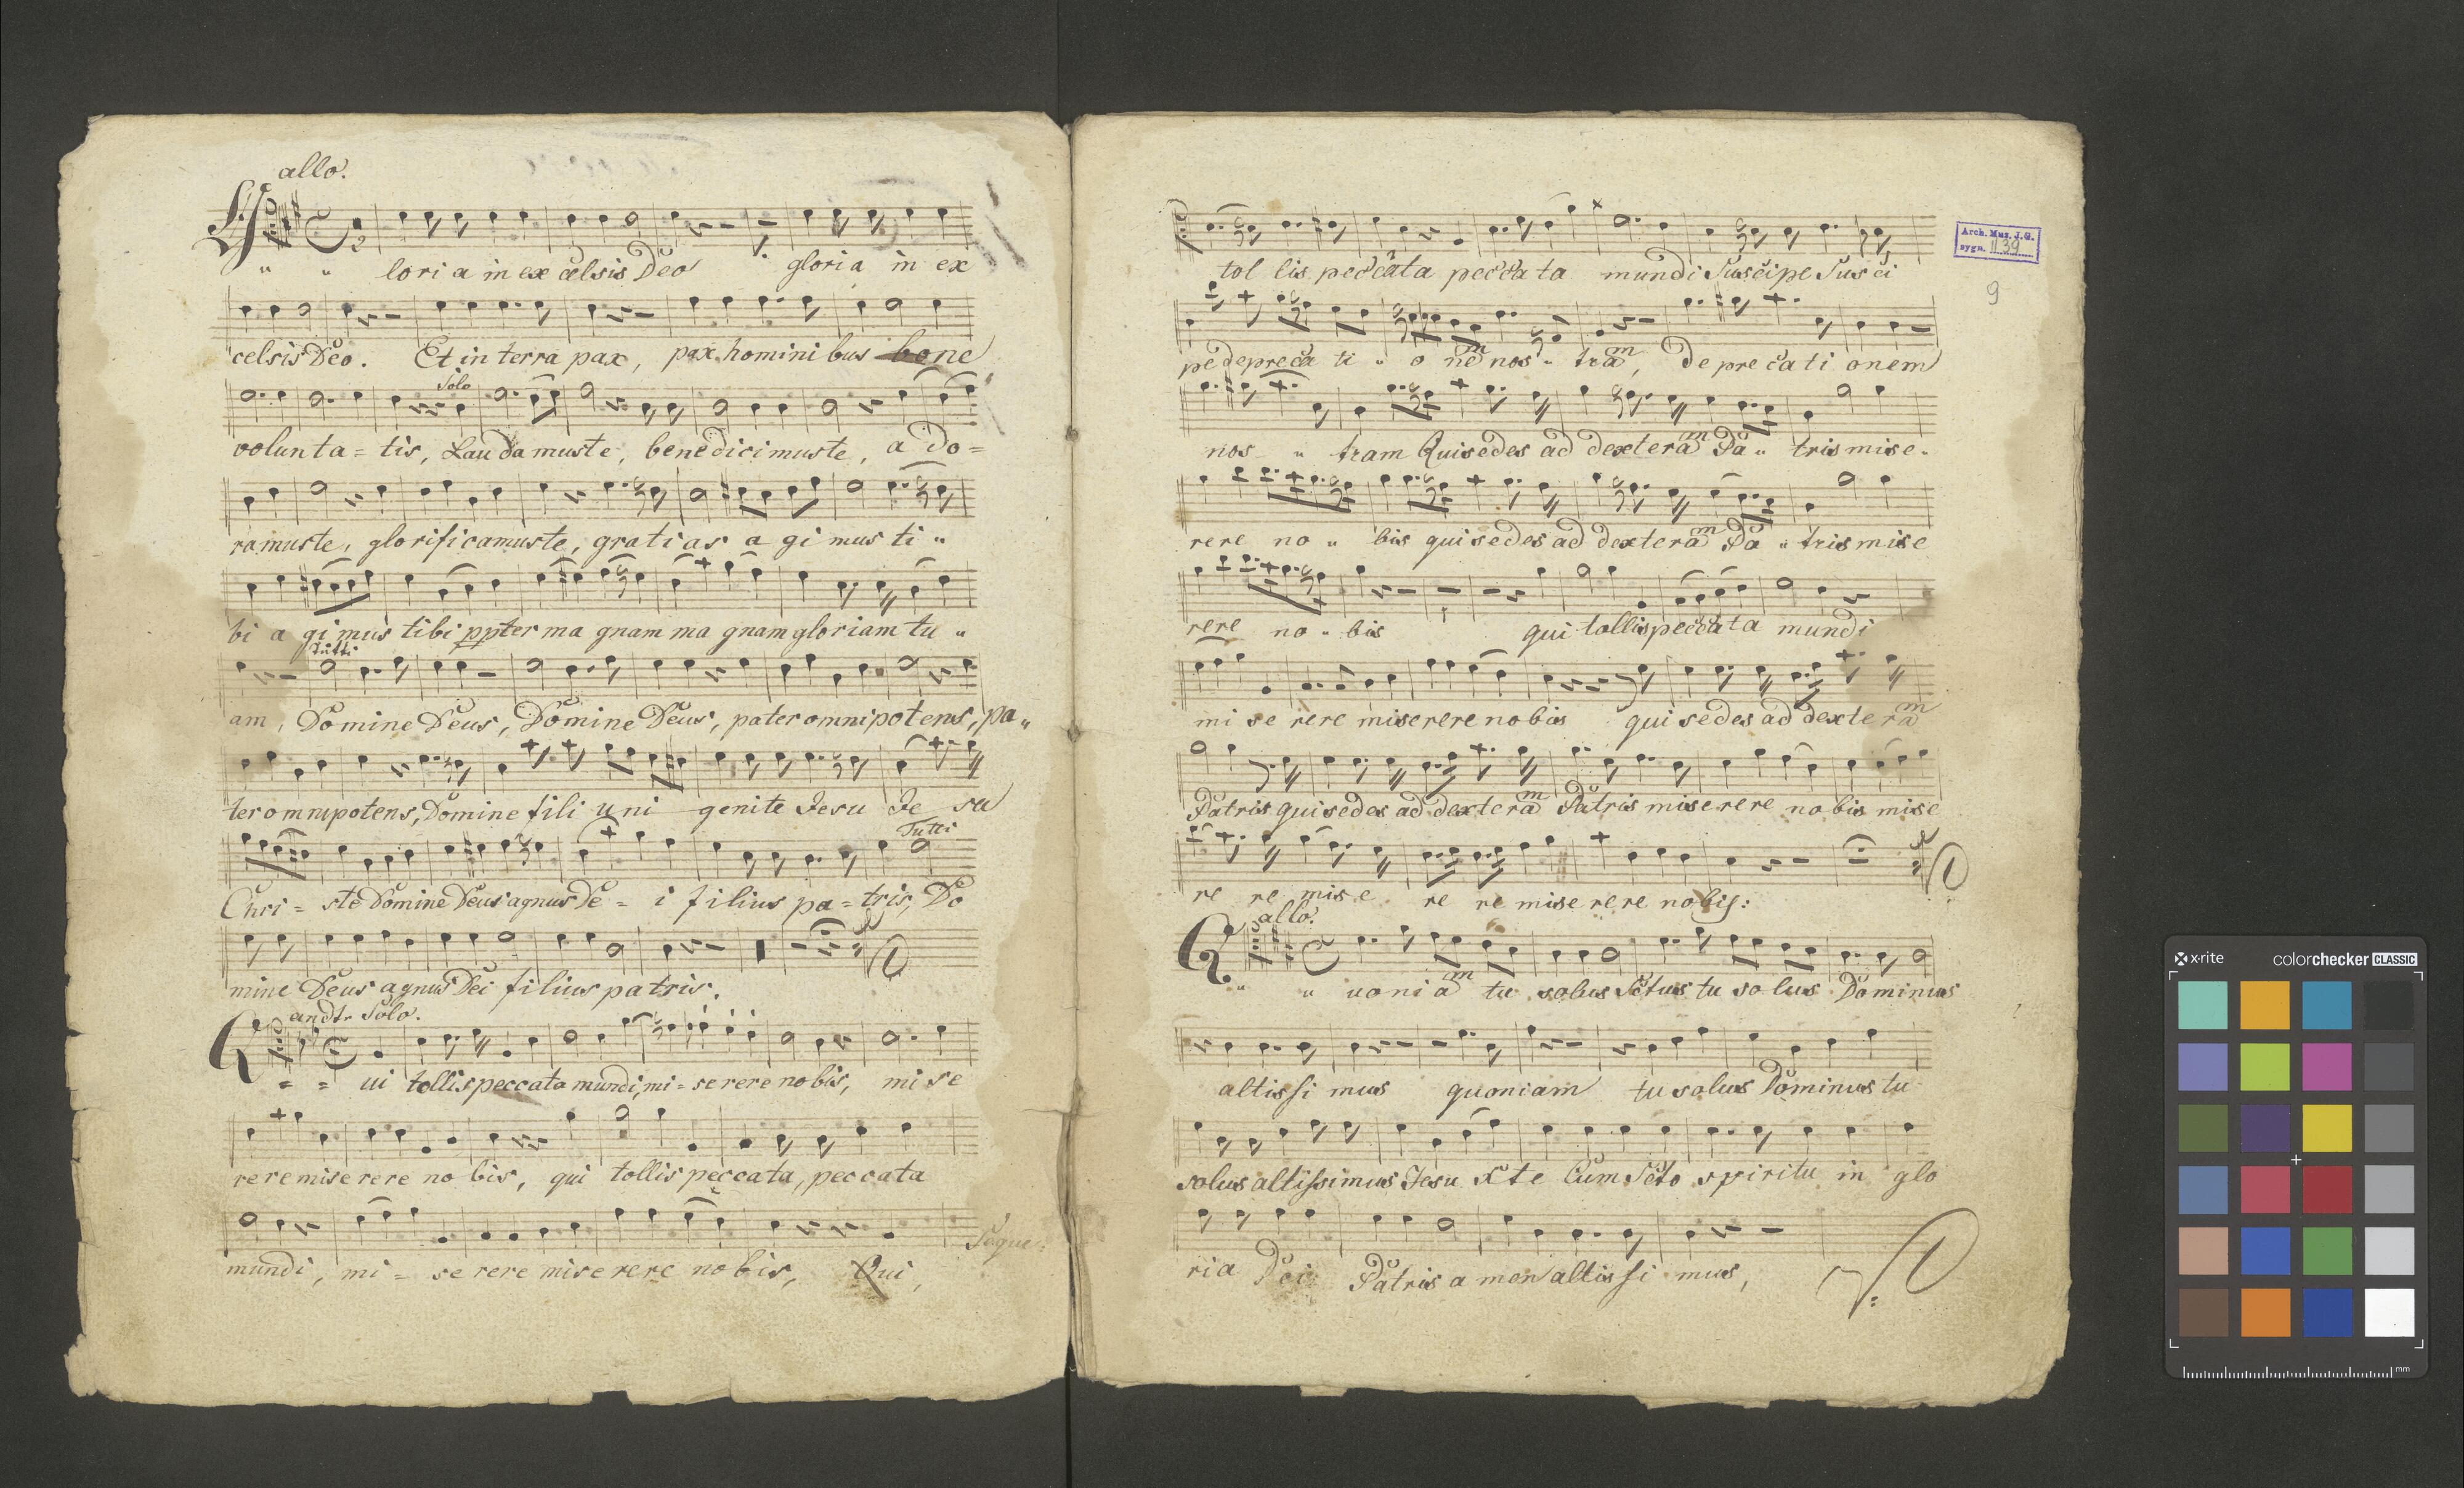 allo.
G " " loria in excelsis Deo gloria in ex
celsis Deo. Et in terra pax, pax hominibus bone
Solo
volunta = tis, Laudamuste, benedicimuste, a do =
ramuste, glorificamuste, gratias a gi mus ti "
bi a gi mus tibi ppter ma gnam ma gnam gloriam tu "
Tutti
am, Domine Deus, Domine Deus, pater omnipotens, pa "
ter omnipotens, Domine fili uni genite Jesu Je su
Tutti
Chri = ste Domine Deus agnus De = i filius pa = tris, Do
mine Deus agnus Dei filius patris.
andte Solo.
Q = = ui tollis peccata mundi, mi = serere nobis, mise
rere miserere no bis, qui tollis peccata, peccata
Seque
mundi, mi = serere miserere nobis, Qui,
Arch. Muz. J.G.
sygn. II.39
tol lis peccata peccata mundi Suscipe Susci
9
pe depreca ti " o nem nos " tram, depreca ti onem
nos " tram Qui sedes ad dexteram Pa " tris mise "
rere no " bis qui sedes ad dexteram Pa " tris mise
rere no " bis qui tollis peccata mundi
mi se rere miserere nobis qui sedes ad dexteram
Patris qui sedes ad dexteram Patris miserere nobis mise
re re mise re re miserere nobis:
allo.
Q " " uoniam tu solus Sctus tu solus Dominus
altissimus quoniam tu solus Dominus tu
solus altissimus Jesu Xte Cum Scto spiritu in glo
ria Dei Patris amen altissimus,
x-rite colorchecker CLASSIC
mm